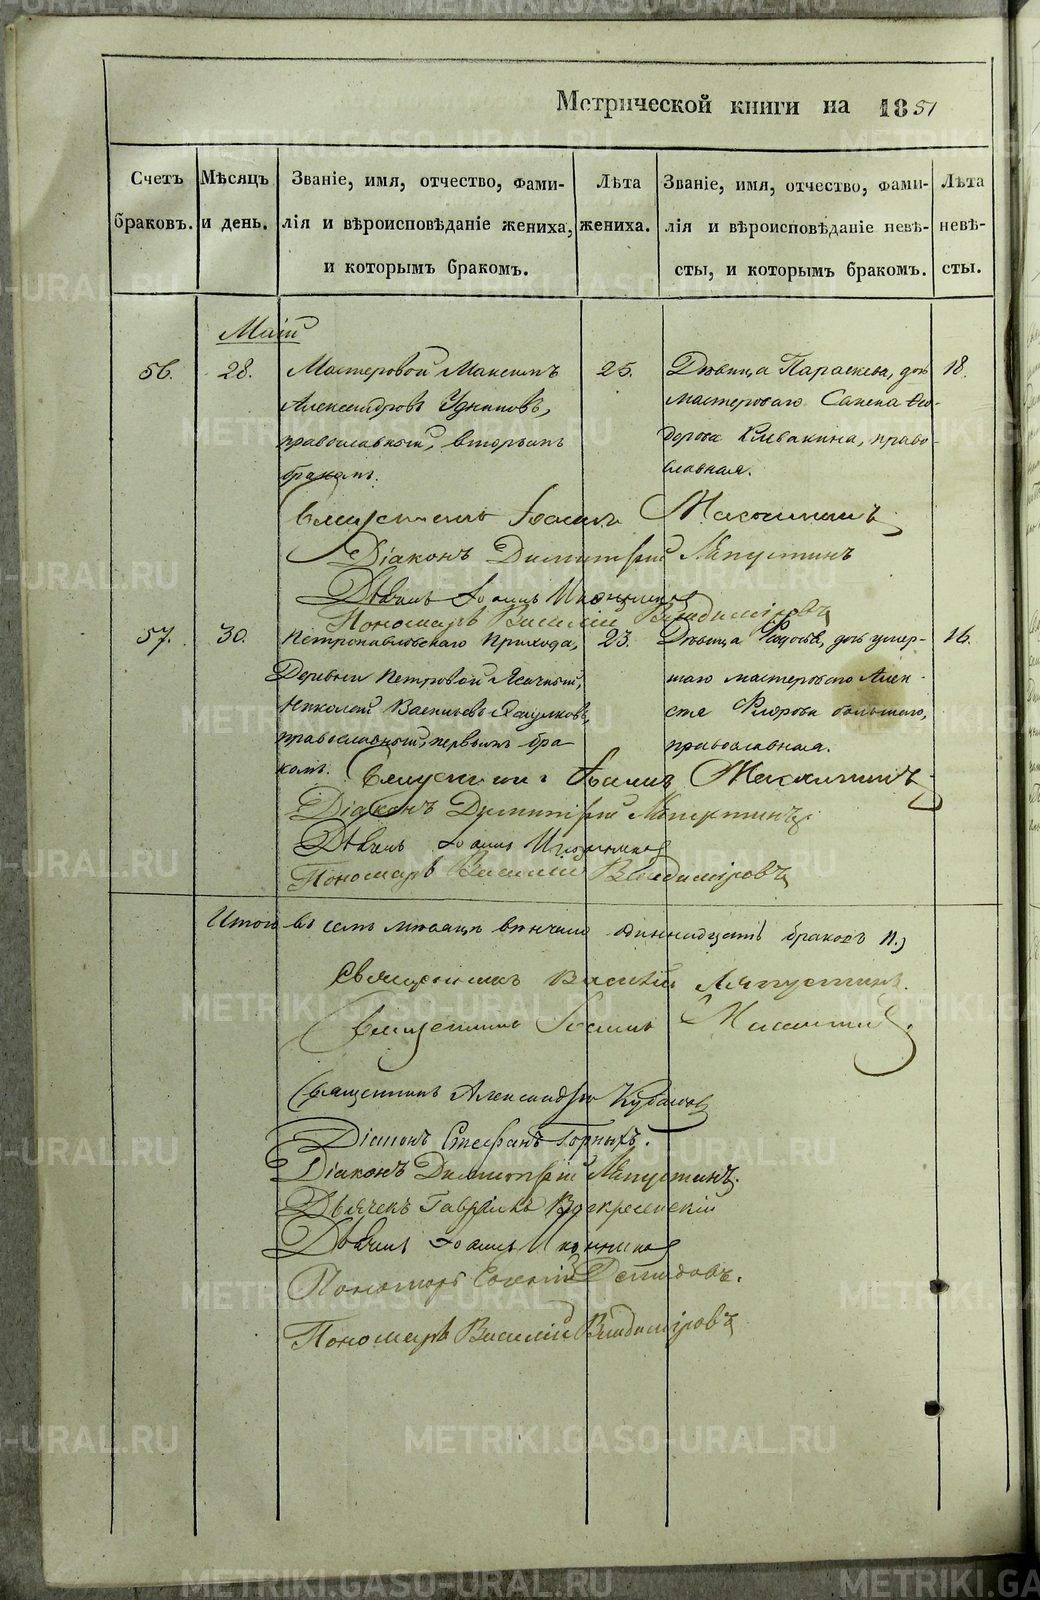 Метрической книги на 1851
Счетъ браковъ.
Мѣсяцъ и день.
Званіе, имя, отчество, фами-
лія и вѣроисповѣданіе жениха,
и которымъ бракомъ.
Лѣта жениха.
Званіе, имя, отчество, фами-
лія и вѣроисповѣданіе невѣ-
сты, и которымъ бракомъ.
Лѣта невѣ-
сты.
Маій
56.
28.
Мастеровой Максимъ
Александровъ
православный, вторымъ
бракомъ.
25.
Дѣвица Параскева, дочь
мастероваго Ѳео-
дорова Клевакина, право-
славная.
18.
Священникъ Іоаннъ
Діаконъ Димитрій Ляпустинъ
Дьячекъ Іоаннъ
Пономарь Василій Владиміровъ
57.
30.
Петропавловскаго прихода,
Деревни Петровой Ясачный,
Николай Васильевъ
православный, первымъ бра-
комъ.
23.
Дѣвица дочь умер-
шаго мастероваго Алек-
сѣя Флорова
православная.
16.
Священникъ Іоаннъ
Діаконъ Димитрій Ляпустинъ
Дьячекъ Іоаннъ
Пономарь Василій Владиміровъ
Итого въ семъ мѣсяцѣ вѣнчано одиннадцать браковъ 11.)
Священникъ Василій Ляпустинъ.
Священникъ Іоаннъ
Священникъ Александръ
Діаконъ Стефанъ Горныхъ.
Діаконъ Димитрій Ляпустинъ.
Дьячекъ Гавріилъ Воскресенскій
Дьячекъ Іоаннъ
Пономарь Демидовъ.
Пономарь Василій Владиміровъ
METRIKI.GASO-URAL.RU